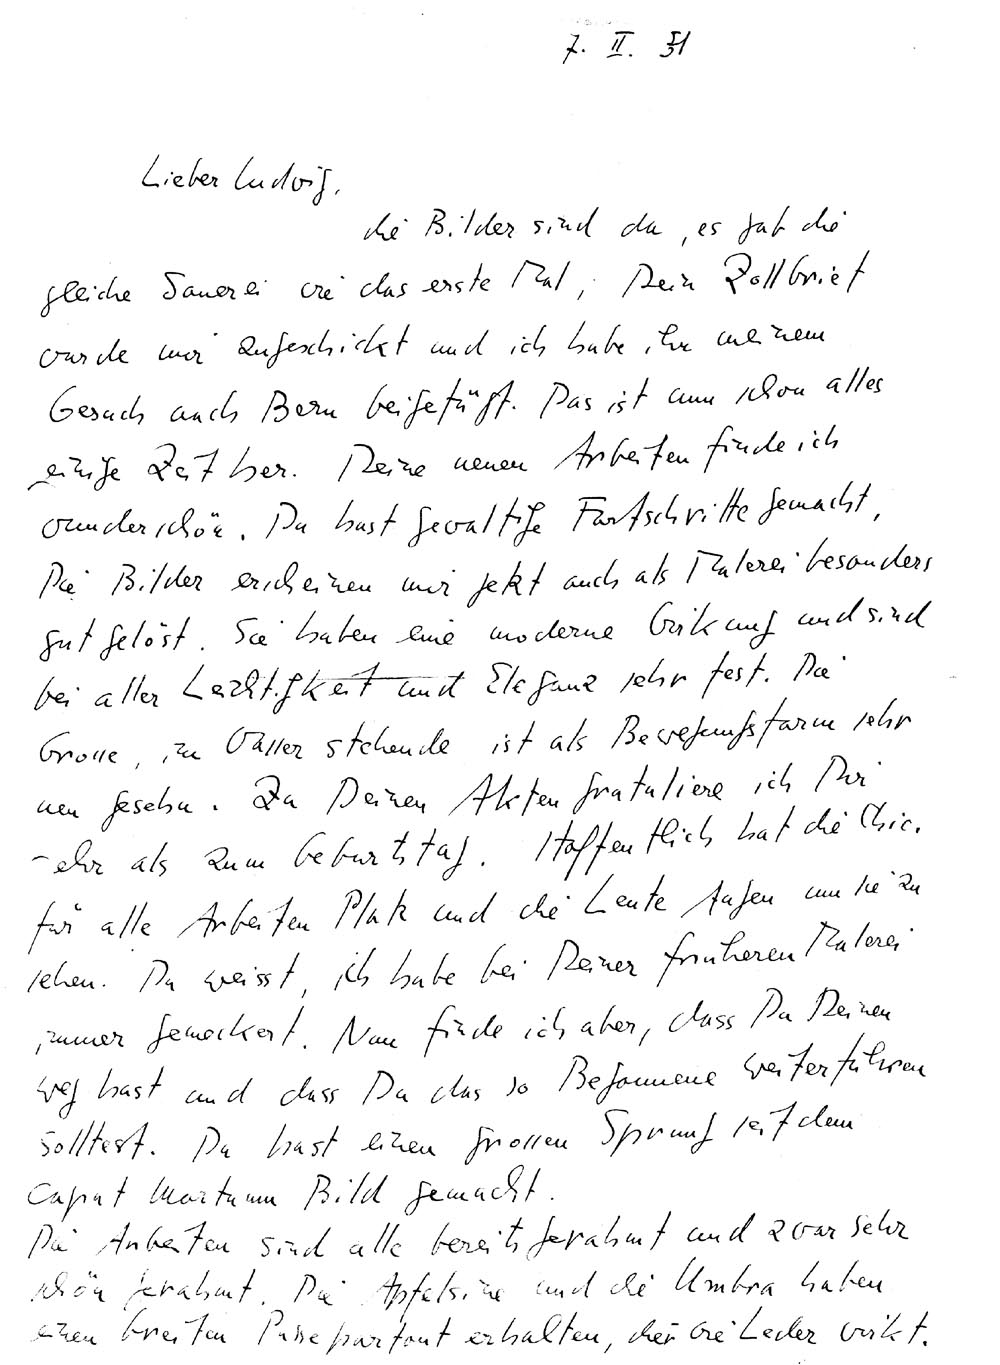 7. II. 51
Lieber Ludwig,
die Bilder sind da, es gab die
gleiche Sauerei wie das erste Mal, Dein Zollbrief
wurde mir zugeschickt und ich habe ihn meinem
Gesuch nach Bern beigefügt. Das ist nun schon alles
einige Zeit her. Deine neuen Arbeiten finde ich
wunderschön. Du hast gewaltige Fortschritte gemacht,
Die Bilder erscheinen mir jetzt auch als Malerei besonders
gut gelöst. Sie haben eine moderne Wirkung und sind
bei aller Leichtigkeit und Eleganz sehr fest. Die
Grosse, im Wasser stehende ist als Bewegungsform sehr
neu gesehn. Zu Deinen Akten gratuliere ich Dir
mehr als zum Geburtstag. Hoffentlich hat die
für alle Arbeiten Platz und die Leute Augen um sie zu
sehen. Du weisst, ich habe bei Deiner früheren Malerei
immer gemeckert. Nun finde ich aber, dass Du Deinen
Weg hast und dass Du das so Begonnene weiterführen
solltest. Du hast einen grossen Sprung seit dem
Caput Mortuum Bild gemacht.
Die Arbeiten sind alle bereits gerahmt und zwar sehr
schön gerahmt. Die Apfelsine und die Umbra haben
einen breiten Passepartout erhalten, der wie Leder wirkt.